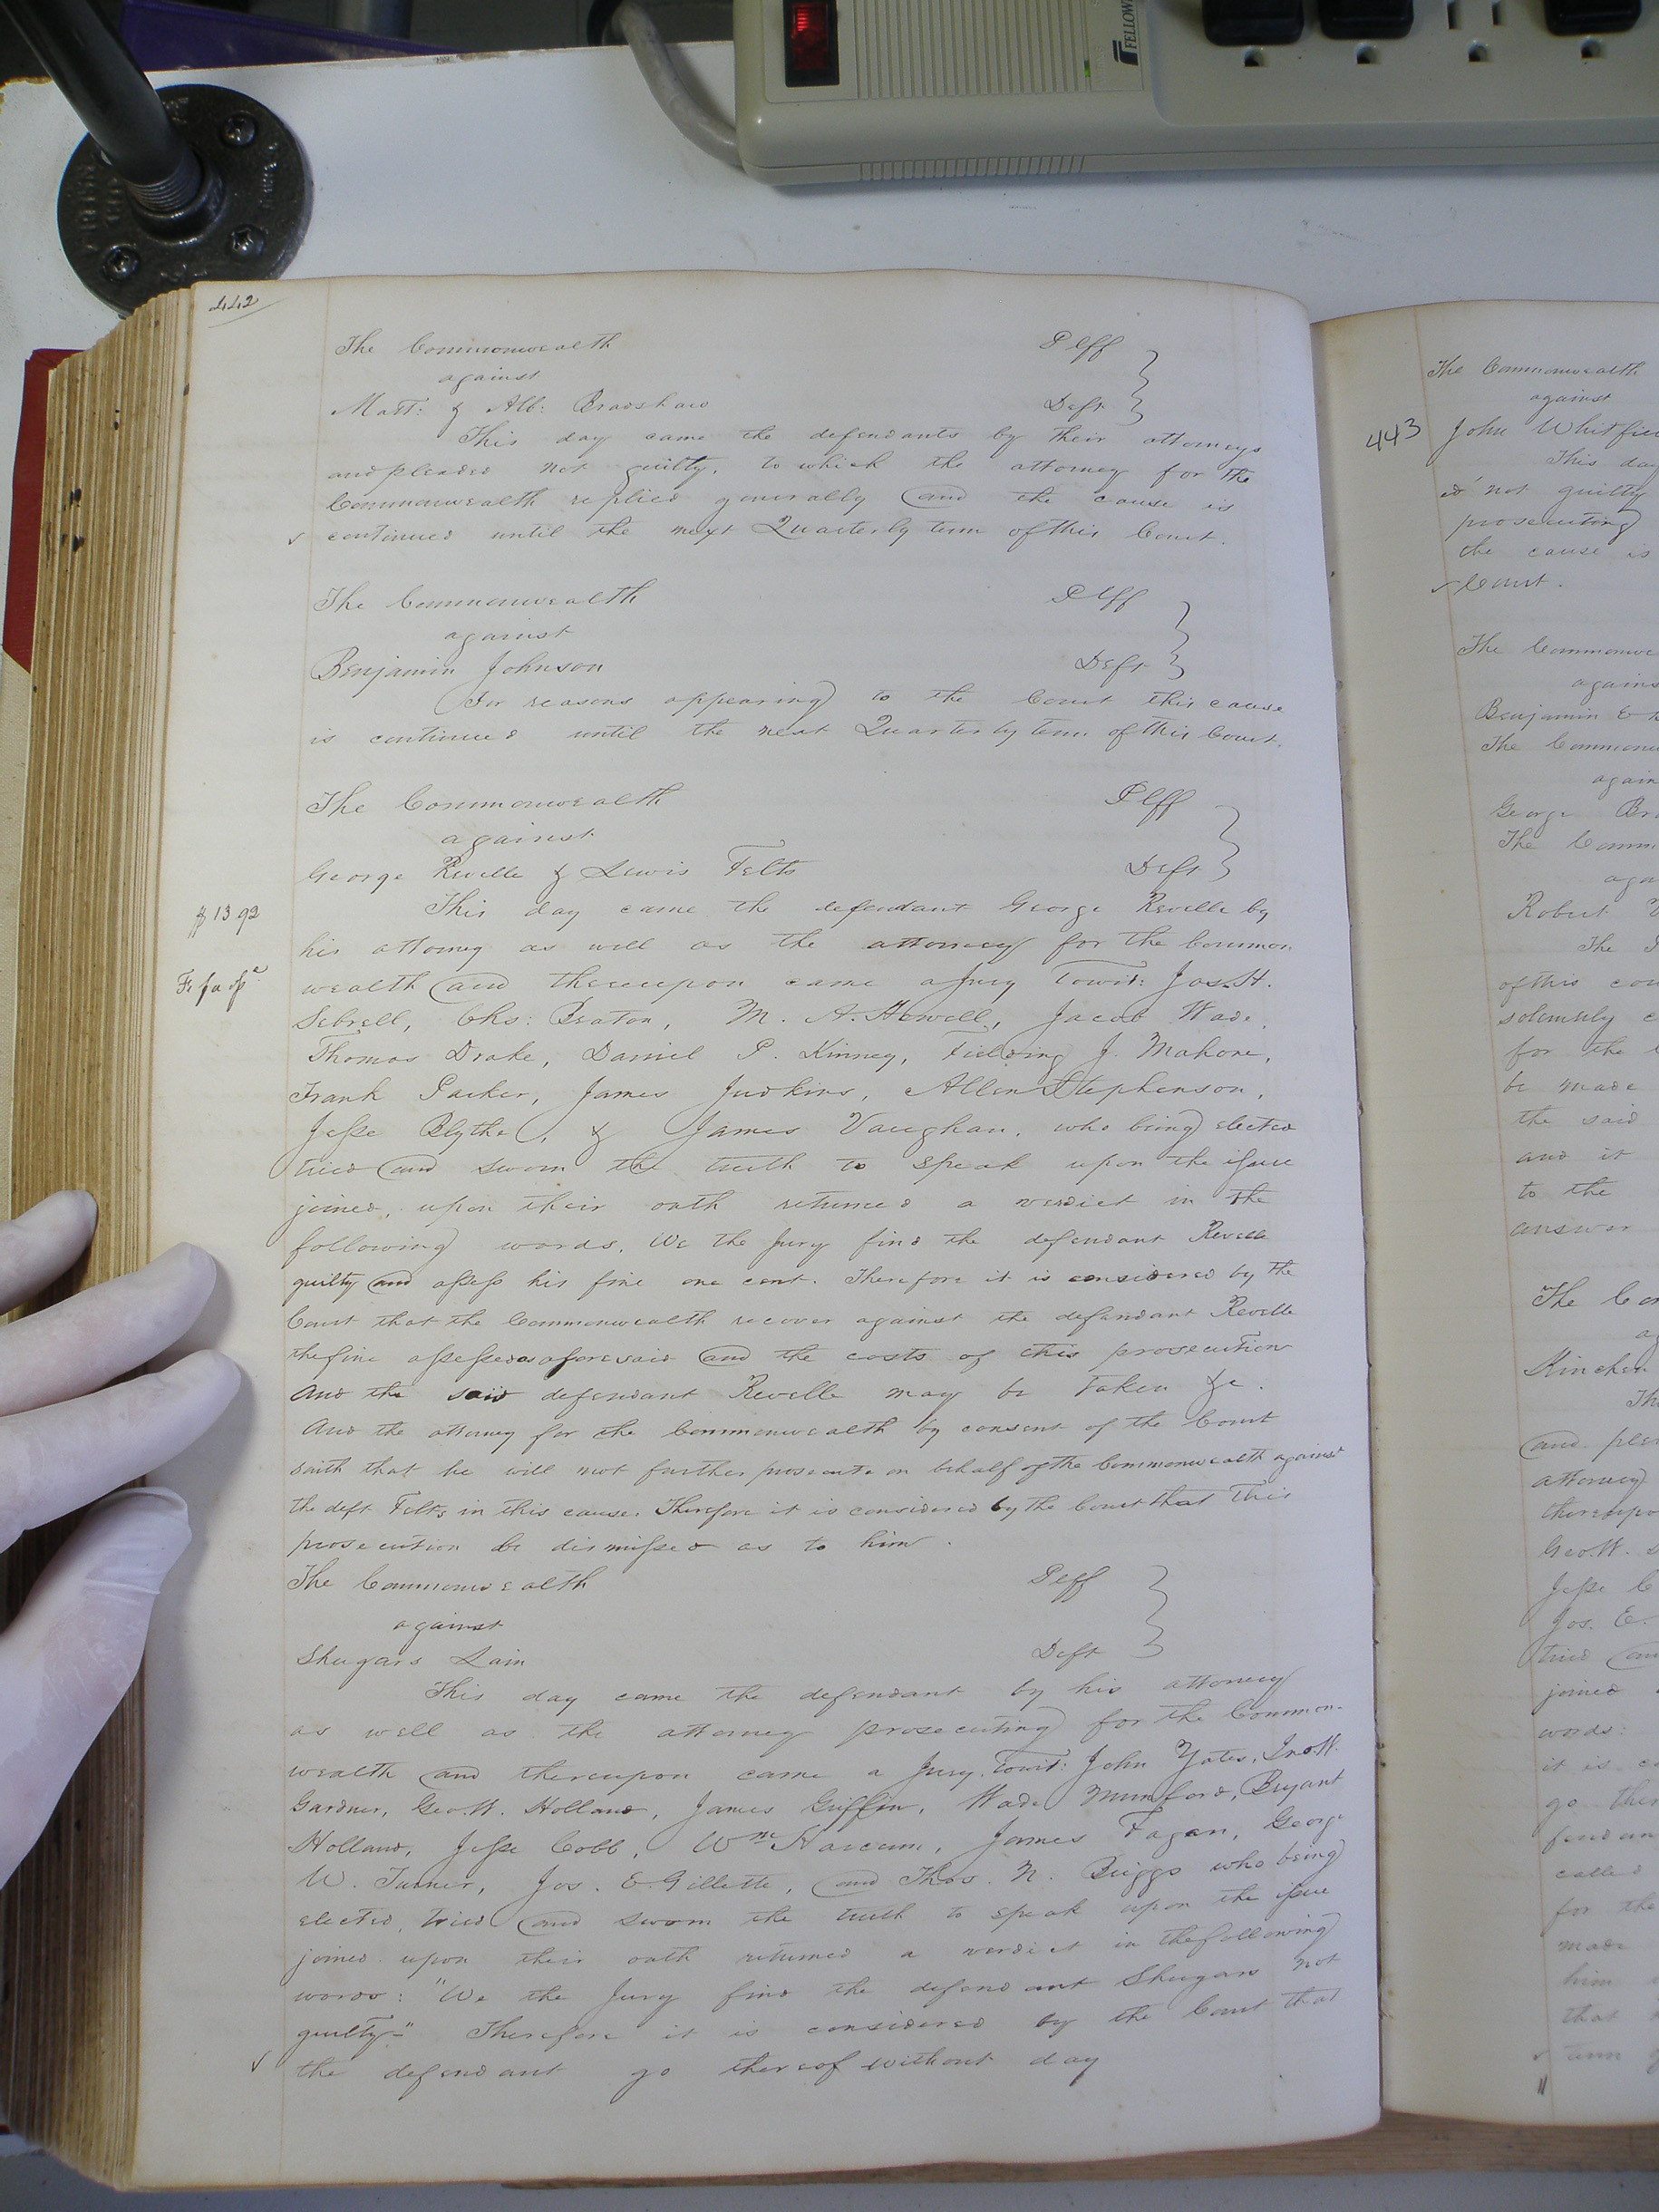 FELLOW
442
The Commonwealth Plff
against
Matt: & Alb: Bradshaw Deft
This day came the defendants by their attorneys
and pleaded not guilty, to which the attorney for the
Commonwealth replied generally and the cause is
continued until the next Quarterly term of this Court.
The Commonwealth Plff
against
Benjamin Johnson Deft
For reasons appearing to the Court this cause
is continued until the next Quarterly term of this Court.
The Commonwealth Plff
against
George Revelle & Lewis Felts Deft
$13 92
This day came the defendant George Revelle by
his attorney as well as the attorney for the Common
Fi fa
wealth and thereupon came a Jury Towit: Jas. H.
Sebrell, Chs: Beaton, M. A. Howell, Jacob Wade,
Thomas Drake, Daniel P. Kinney, Fielding J. Mahone,
Frank Parker, James Judkins, Allen Stephenson,
Jesse Blythe, & James Vaughan, who being elected
tried and sworn the truth to speak upon the issue
joined, upon their oath returned a verdict in the
following words, We the Jury find the defendant Revelle
guilty and assess his fine one cent. Therefore it is considered by the
Court that the Commonwealth recover against the defendant Revelle
the fine assessed as aforesaid and the costs of this prosecution
And the said defendant Revelle may be taken &c.
And the attorney for the Commonwealth by consent of the Court
saith that he will not further prosecute on behalf of the Commonwealth against
the deft Felts in this cause. Therefore it is considered by the Court that this
prosecution be dismissed as to him.
The Commonwealth Plff
against
Shugars Lain Deft
This day came the defendant by his attorney
as well as the attorney prosecuting for the Common-
wealth and thereupon came a Jury, Towit: John Yates, Jno. W.
Gardner, Geo. W. Holland, James Griffin, Wade Mumford, Bryant
Holland, Jesse Cobb, Wm Harcum, James Fagan, George
W. Turner, Jos. E. Gillette, and Thos. N. Briggs who being
elected, tried and sworn the truth to speak upon the issue
joined upon their oath returned a verdict in the following
words: "We the Jury find the defendant Shugars not
guilty-" Therefore it is considered by the Court that
the defendant go thereof without day
The Commonwealth
against
443 John Whitfie
This day
ed not guilty
prosecuting
the cause is
Court.
The Commonwe
agains
Benjamin E
The Commonw
again
George Br
The Comm
aga
Robert
The
of this cou
solemnly c
for the
be made
the said
and it
to the
answer
The Co
ag
Kinchen
Th
and plea
attorney
thereupo
Geo. W.
Jesse C
Jos. E.
tried an
joined
words:
it is c
go ther
fendan
called
for the
made
him
that